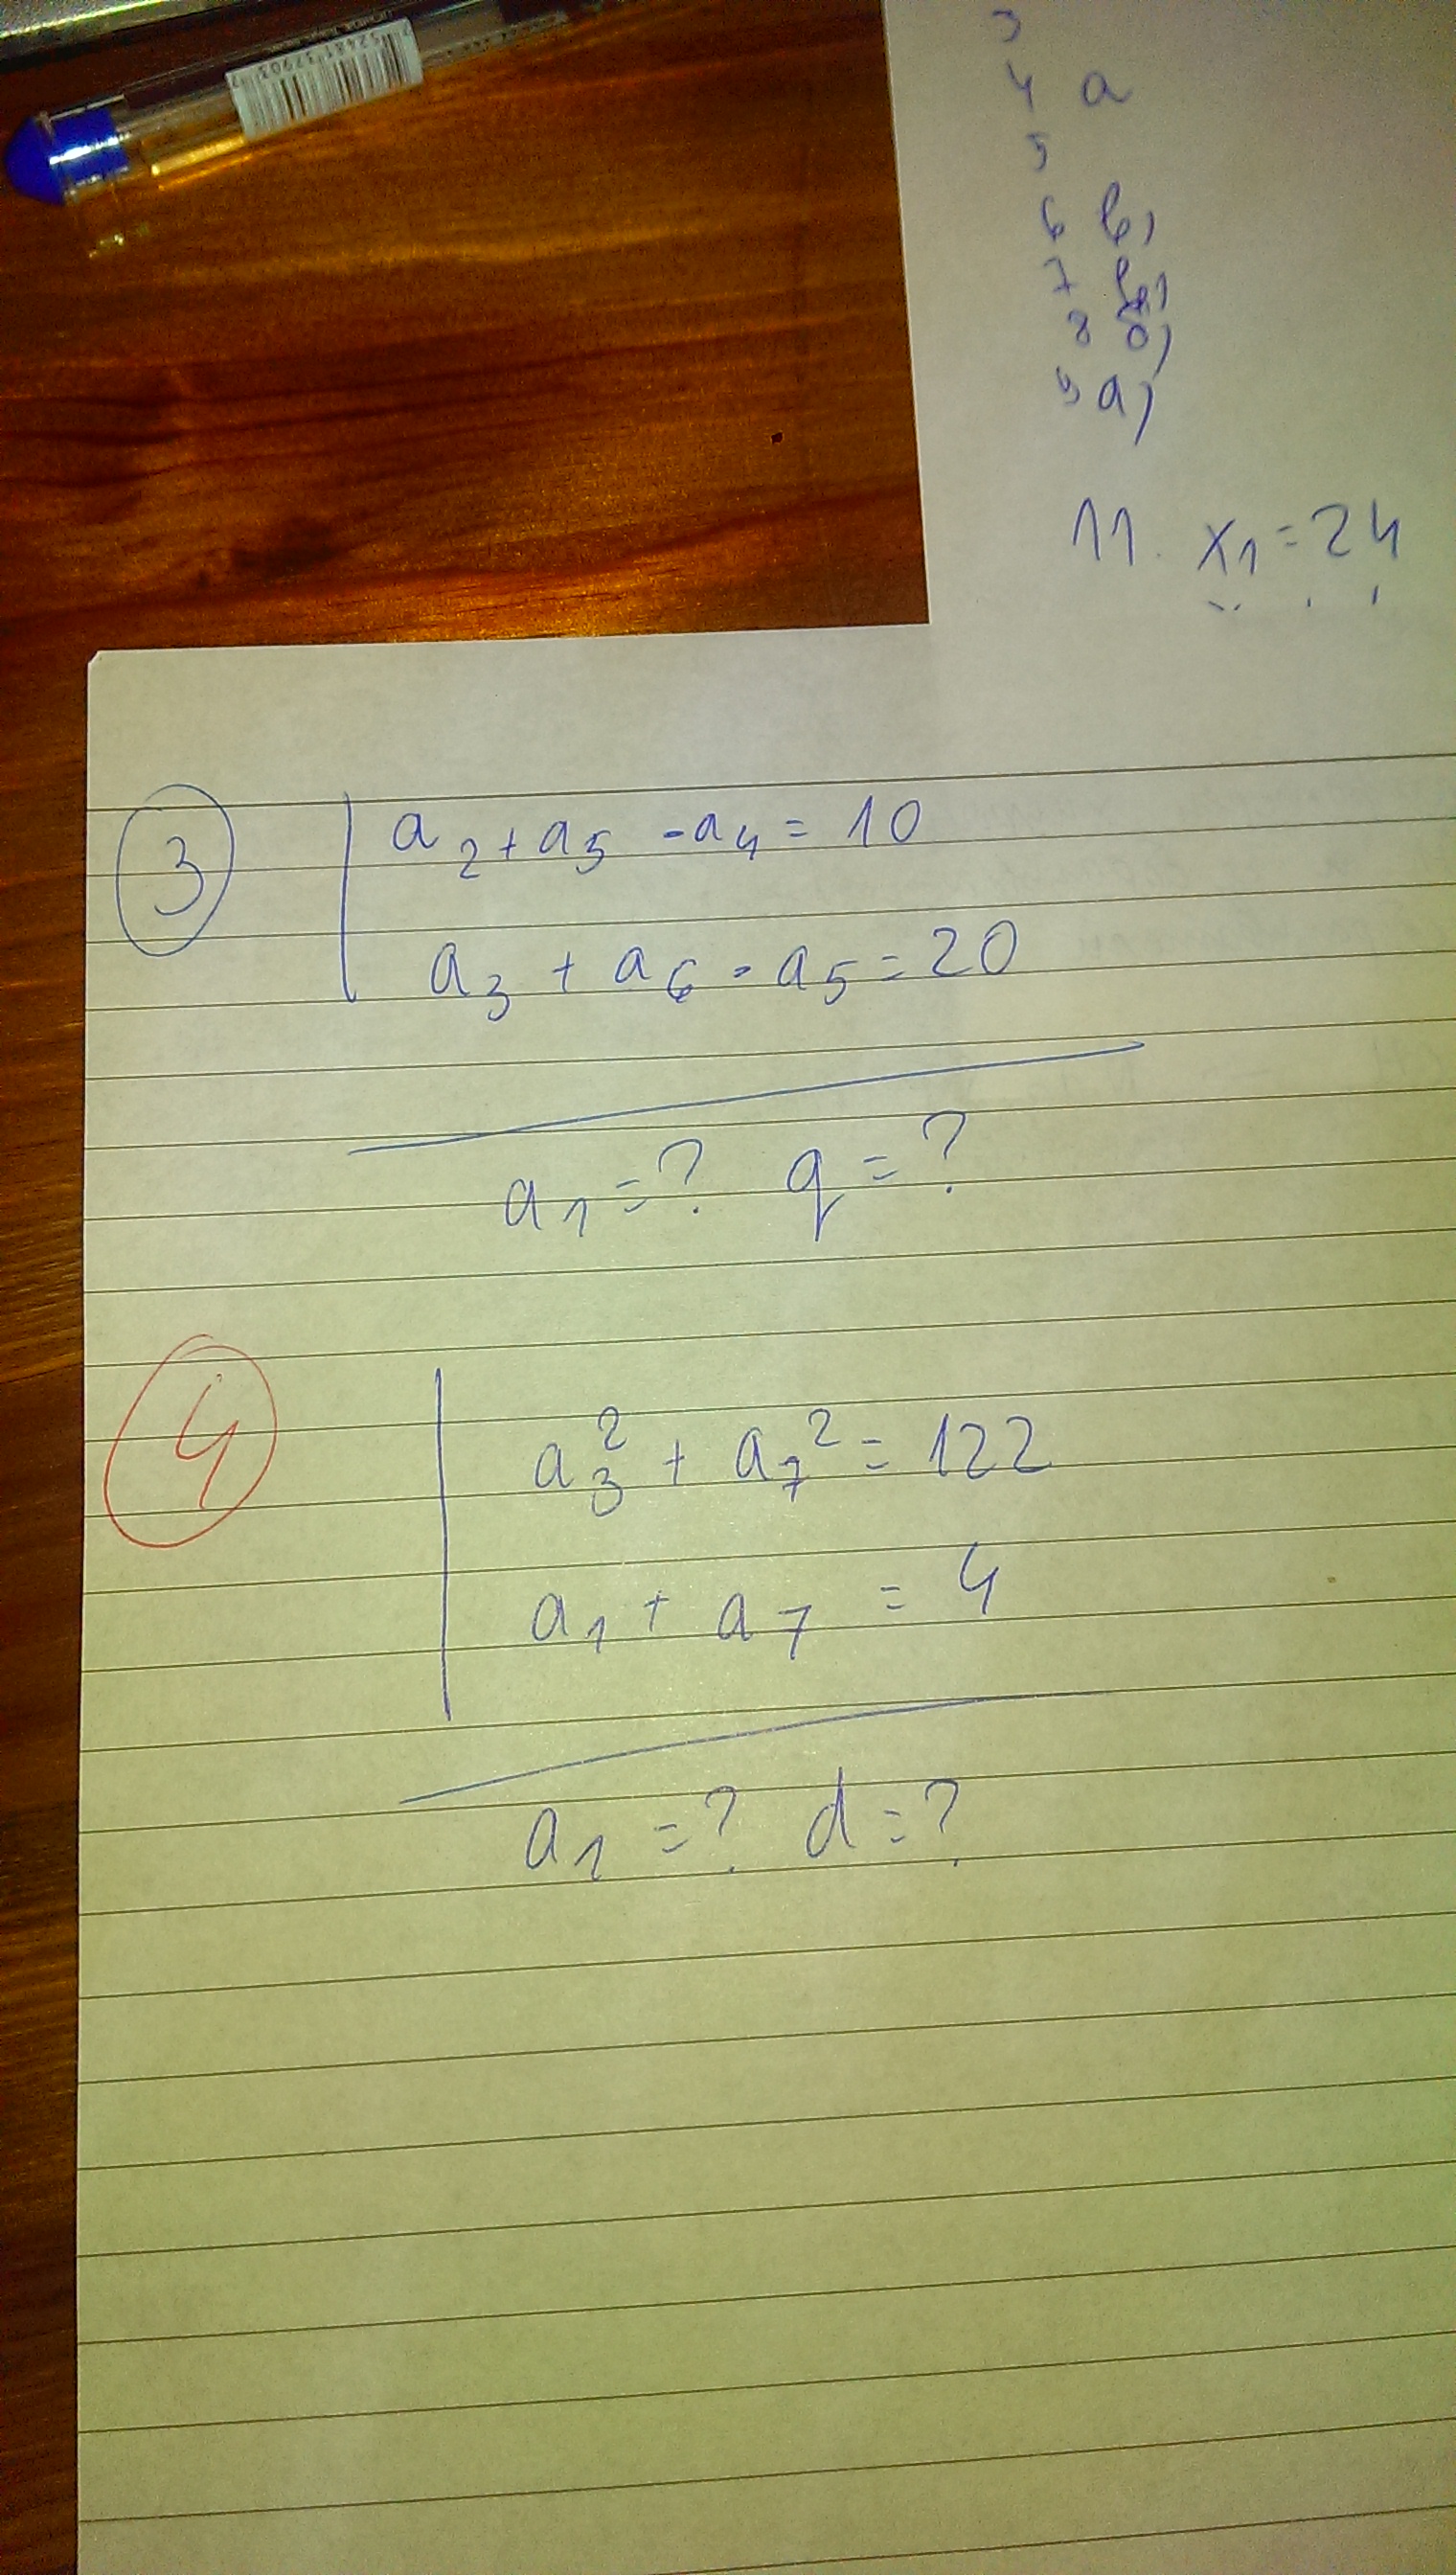 3
4 a
5
6 b)
7
8 б)
9 a)
11. x₁=24
3
a₂+a₅ -a₄= 10
a₃ + a₆ - a₅=20
a₁=? q=?
4
a₃² + a₇² = 122
a₁ + a₇ = 4
a₁ =? d=?